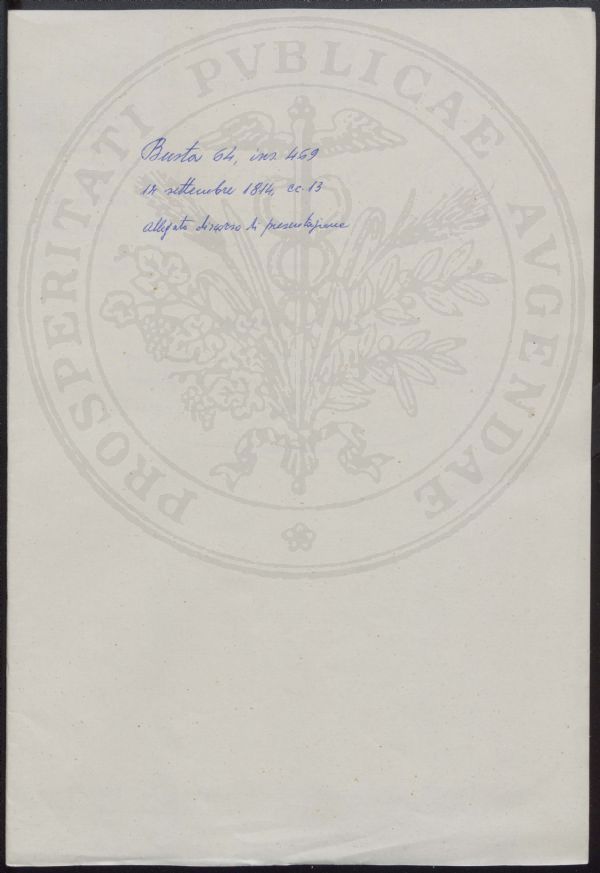 PROSPERITATI PVBLICAE AVGENDAE
Busta 64, ins. 469
18 settembre 1814, cc. 13
allegato discorso di presentazione